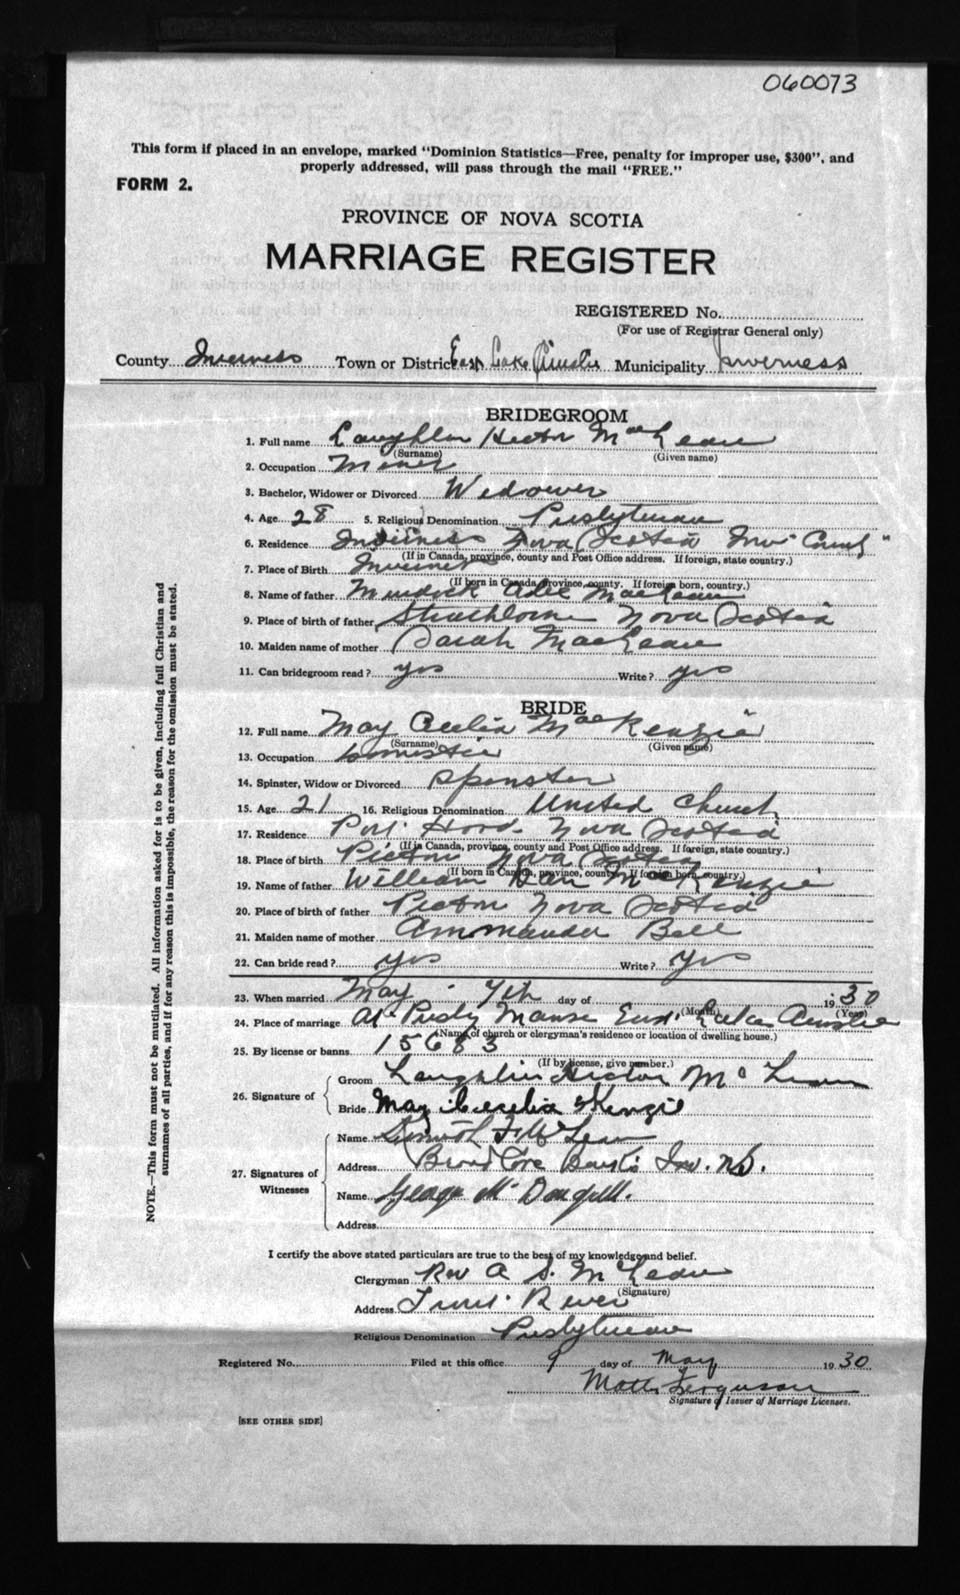 060073
This form if placed in an envelope, marked "Dominion Statistics—Free, penalty for improper use, $300", and
properly addressed, will pass through the mail "FREE."
FORM 2.
PROVINCE OF NOVA SCOTIA
MARRIAGE REGISTER
REGISTERED No.
(For use of Registrar General only)
County Inverness Town or District East Lake Ainslie Municipality Inverness
BRIDEGROOM
1. Full name Laughlin Hector MacLean
(Surname) (Given name)
2. Occupation Miner
3. Bachelor, Widower or Divorced Widower
4. Age 28 5. Religious Denomination Presbyterian
6. Residence Inverness Nova Scotia Inv County
(If in Canada, province, county and Post Office address. If foreign, state country.)
7. Place of Birth Inverness
(If born in Canada, province, county. If foreign born, country.)
8. Name of father Murdock MacLean
9. Place of birth of father Strathlorne Nova Scotia
10. Maiden name of mother Sarah MacLean
11. Can bridegroom read? yes Write? yes
BRIDE
12. Full name May Cecelia MacKenzie
(Surname) (Given name)
13. Occupation Domestic
14. Spinster, Widow or Divorced Spinster
15. Age 21 16. Religious Denomination United Church
17. Residence Port Hood Nova Scotia
(If in Canada, province, county and Post Office address. If foreign, state country.)
18. Place of birth Pictou Nova Scotia
(If born in Canada, province, county. If foreign born, country.)
19. Name of father William Dan MacKenzie
20. Place of birth of father Pictou Nova Scotia
21. Maiden name of mother Ammanda Bell
22. Can bride read? yes Write? yes
23. When married May 7th day of 1930
(Month) (Year)
24. Place of marriage At Presby Manse East Lake Ainslie
(Name of church or clergyman's residence or location of dwelling house.)
25. By license or banns 15683
(If by license, give number.)
26. Signature of
Groom Laughlin Hector McLean
Bride May Cecelia McKenzie
27. Signatures of Witnesses
Name McLean
Address Broad Cove Banks Inv. N.S.
Name George McDougall.
Address
I certify the above stated particulars are true to the best of my knowledge and belief.
Clergyman Rev A S. McLean
(Signature)
Address Trout River
Religious Denomination Presbyterian
Registered No. Filed at this office 9 day of May 1930
Ferguson
Signature of Issuer of Marriage Licenses.
[SEE OTHER SIDE]
NOTE.—This form must not be mutilated. All information asked for is to be given, including full Christian and
surnames of all parties, and if for any reason this is impossible, the reason for the omission must be stated.